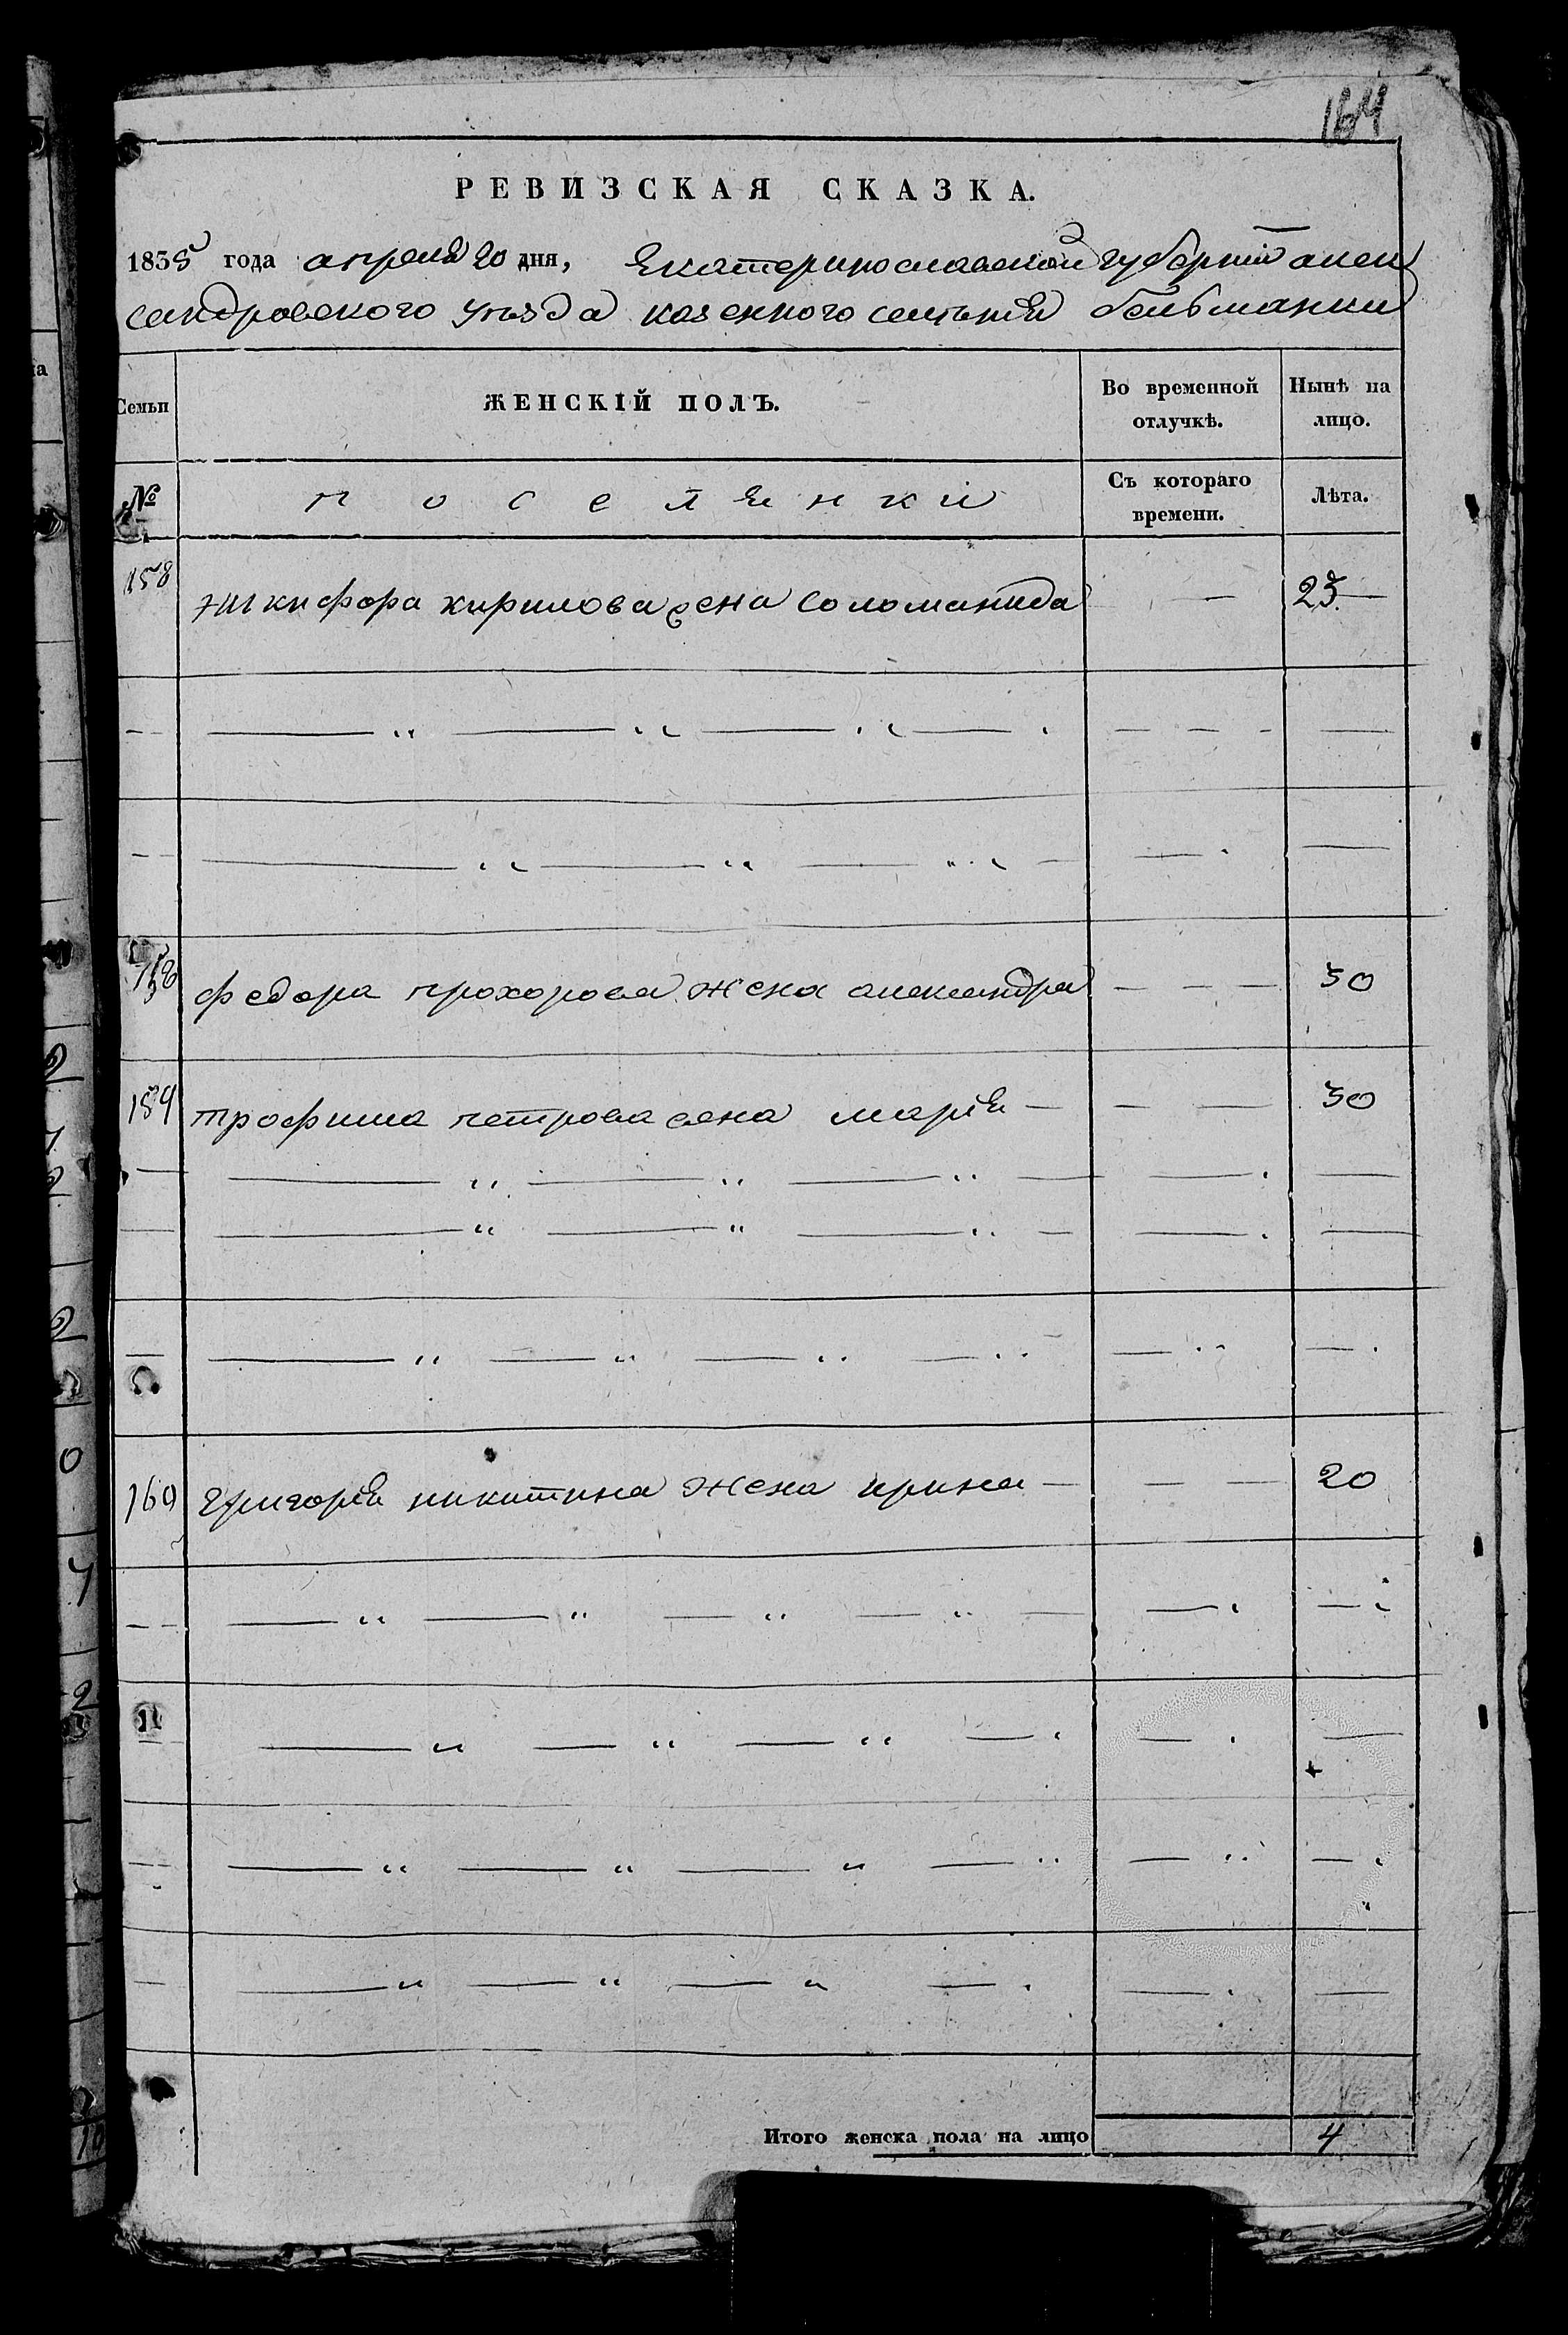 164
РЕВИЗСКАЯ СКАЗКА.
1835 года апреля 20 дня, Екатеринославской губернии алек
сандровского уезда казенного селения белманки
Семьи
ЖЕНСКІЙ ПОЛЪ.
Во временной отлучкѣ.
Нынѣ на лицо.
№
поселянки
Съ котораго времени.
Лѣта.
158 никифора кирилова жена Соломанида — 23
федора прохорова жена александра — — — 30
159 трофима петрова жена марія — — — 30
169 григорія никитина жена ирина — — — 20
Итого женска пола на лицо 4